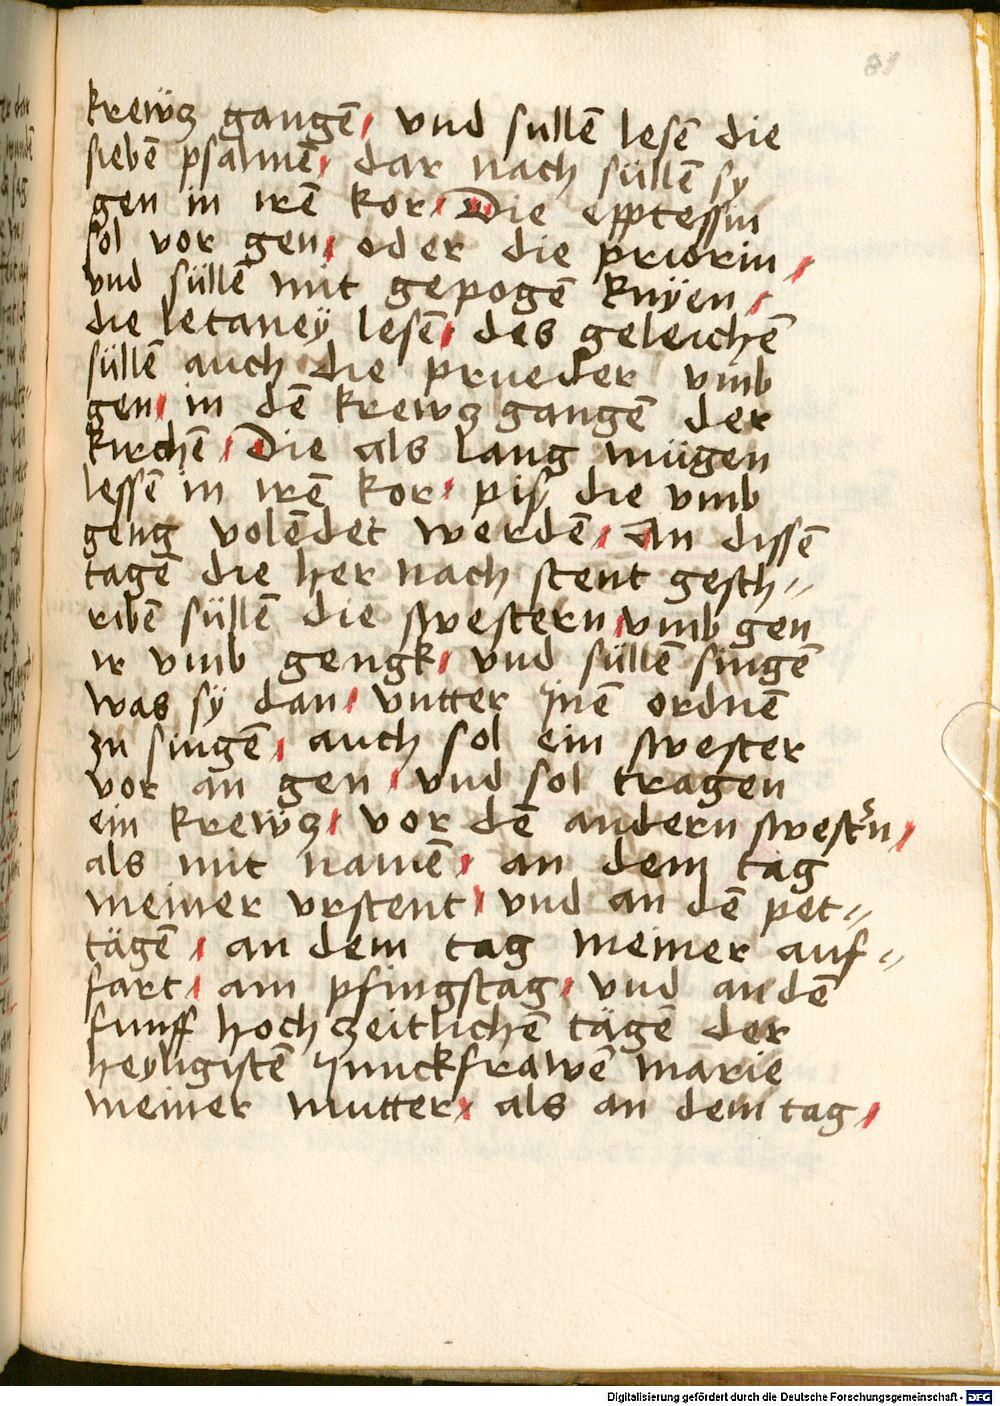 81
krewÿg gangē / vnd sullē lesē die
siebē psalmē / dar nach süllē sy
gen in irē kor / Die epptessin
sol vor gen / oder die priorin /
vnd süllē mit gepogē knÿen /
die letaneÿ lesē / des geleichē
süllē auch die prueder vmb
gen / in dē krewg gangē der
kirchē / Die als lang mügen
lessē in irē kor / piß die vmb
geng volēdet werdē / An dissē
tagē die her nach stent gesch//
ribē süllē die swestern / vmb gen
ir vmb gengk / vnd süllē singē
was sÿ dan / vntter jnē ordnē
zu singē / auch sol ein swester
vor an gen / vnd sol tragen
ein krewÿg / vor dē andern swest̄n /
als mit namē / an dem tag
meiner vrstent / vnd an dē pet//
tägē / an dem tag meiner auf//
fart / am pfingstag / vnd an dē
funff hochzeitlichē tägē der
heyligistē Junckfrawē marie
meiner mutter / als an dem tag /
Digitalisierung gefördert durch die Deutsche Forschungsgemeinschaft - DFG